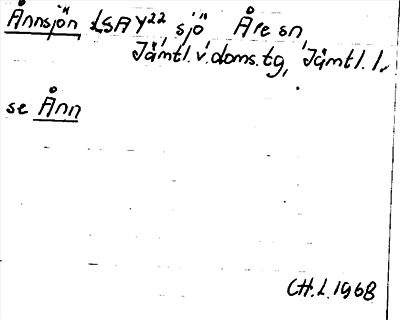 Ånnsjön LSA Y22 sjö Åre sn,
Jämtl. v. doms. tg, Jämtl. l.
se Ånn
CH.L. 1968